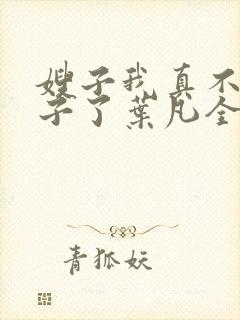 嫂子我真不
子了葉凡全
青狐妖